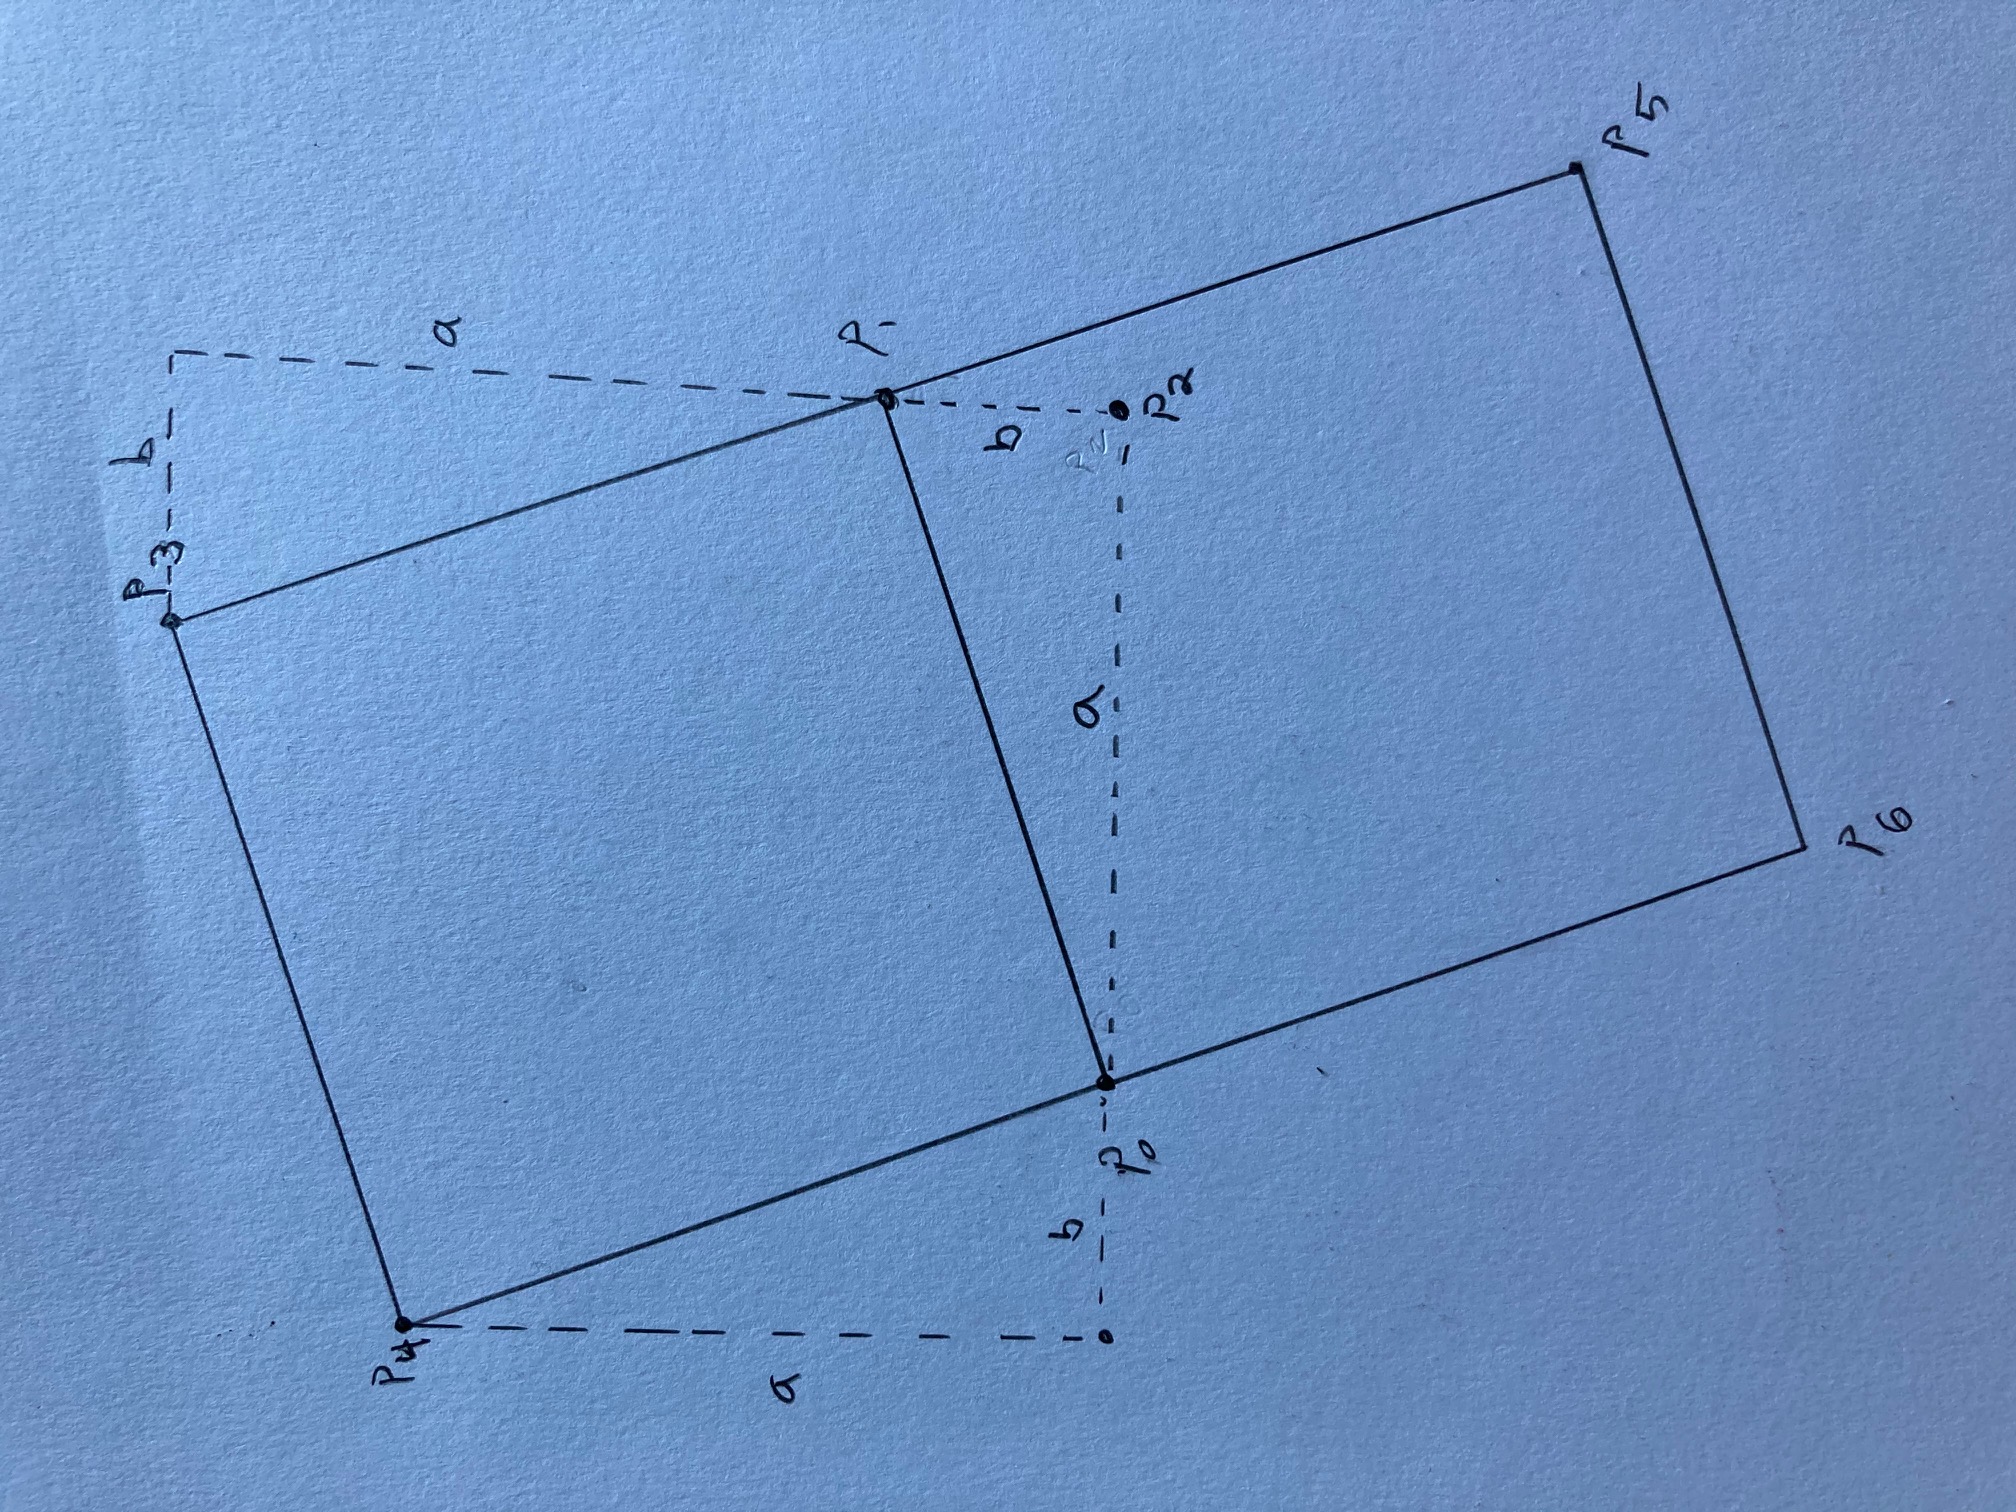 P3
b
P4
a
a
P1
b
b
a
P2
P0
P2
P5
P6